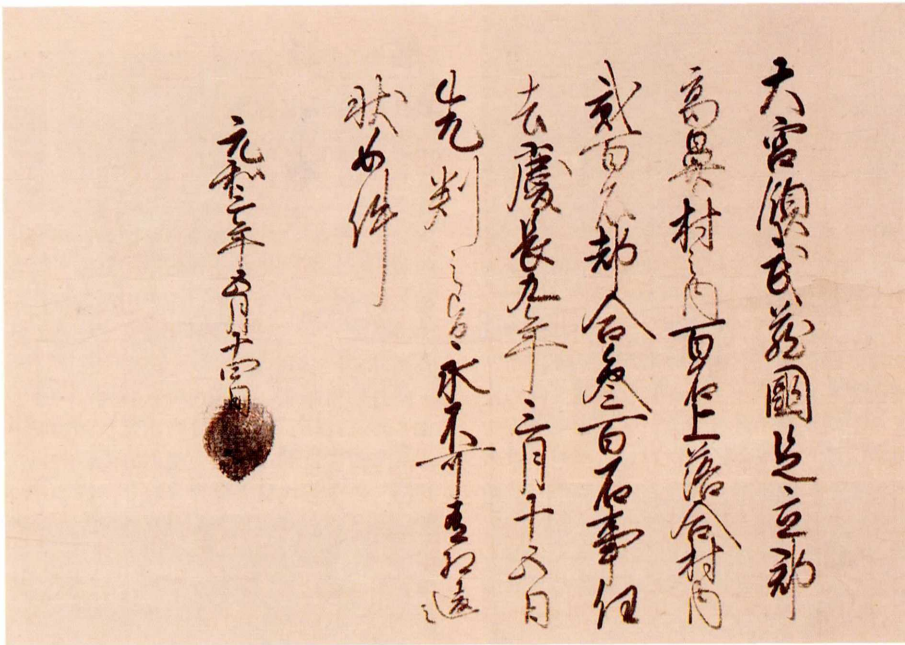 大宮領武蔵國足立郡
高鼻村之内百石上落合村内
貳百石都合參百石事任
去慶長九年三月十五日
先判之旨永不可有相違之
状如件
元和三年五月十四日